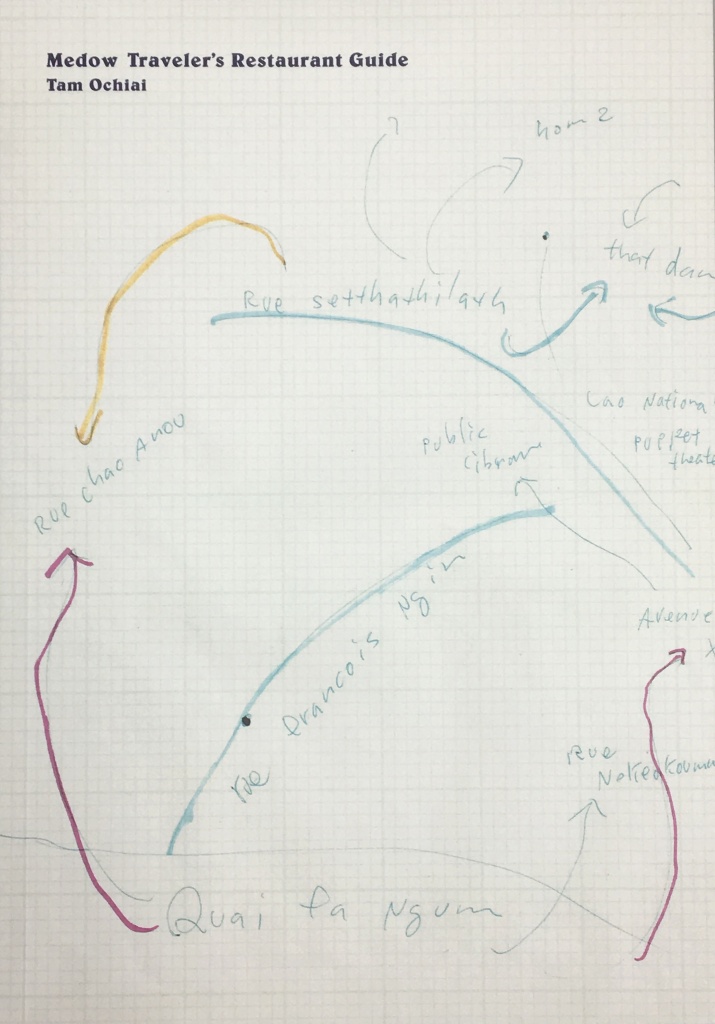 Medow Traveler's Restaurant Guide
Tam Ochiai
hom 2
that dam
Rue setthathilath
Lao Nationa
puppet
theate
public
Rue chao Anou
rue francois Ngin
Avenue
X
Rue
Nokeokoumm
Quai fa Ngum